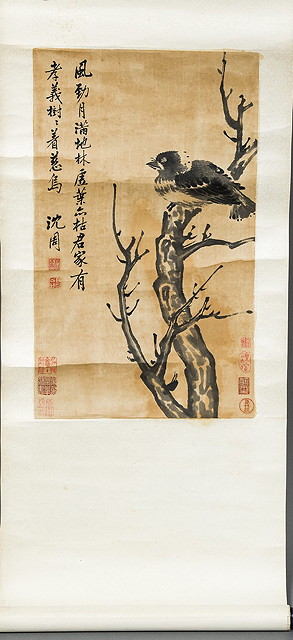 風勁月滿地林虛葉亦枯君家有
孝義樹〻着慈烏
沈周